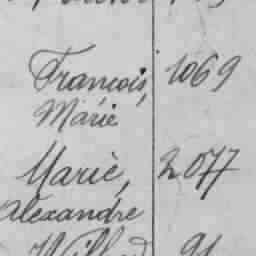 François, 1069
Marie
Marie, 2077
Alexandre